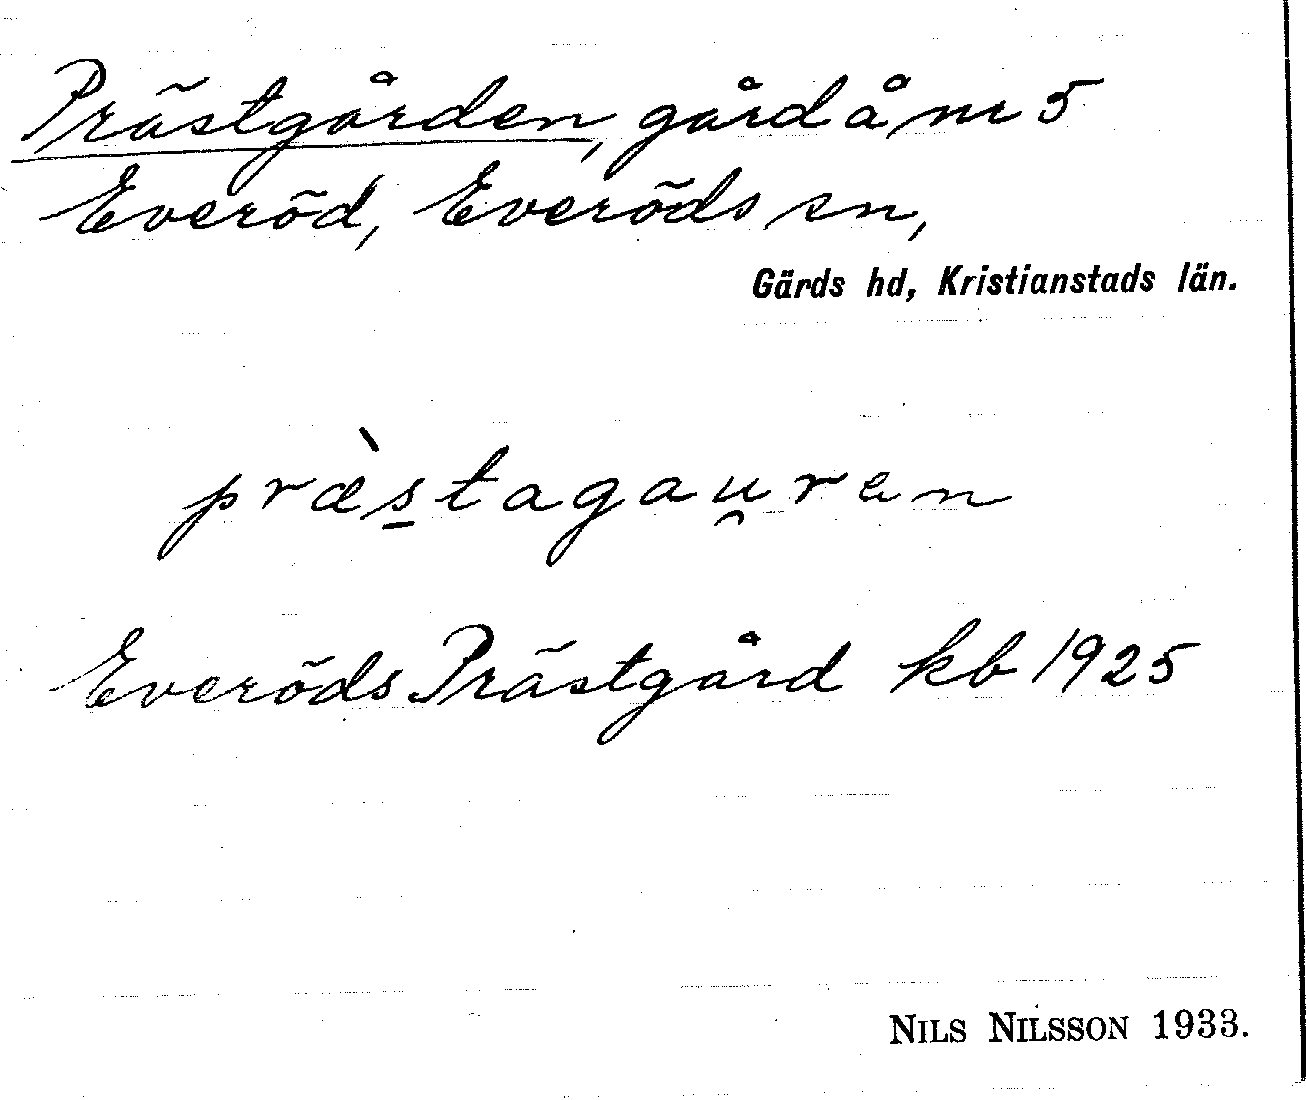 Prästgården, gård å nr 5
Everöd, Everöds sn,
Gärds hd, Kristianstads län.
præ̀s̠tagau̯ren
Everöds Prästgård kb 1925
NILS NILSSON 1933.